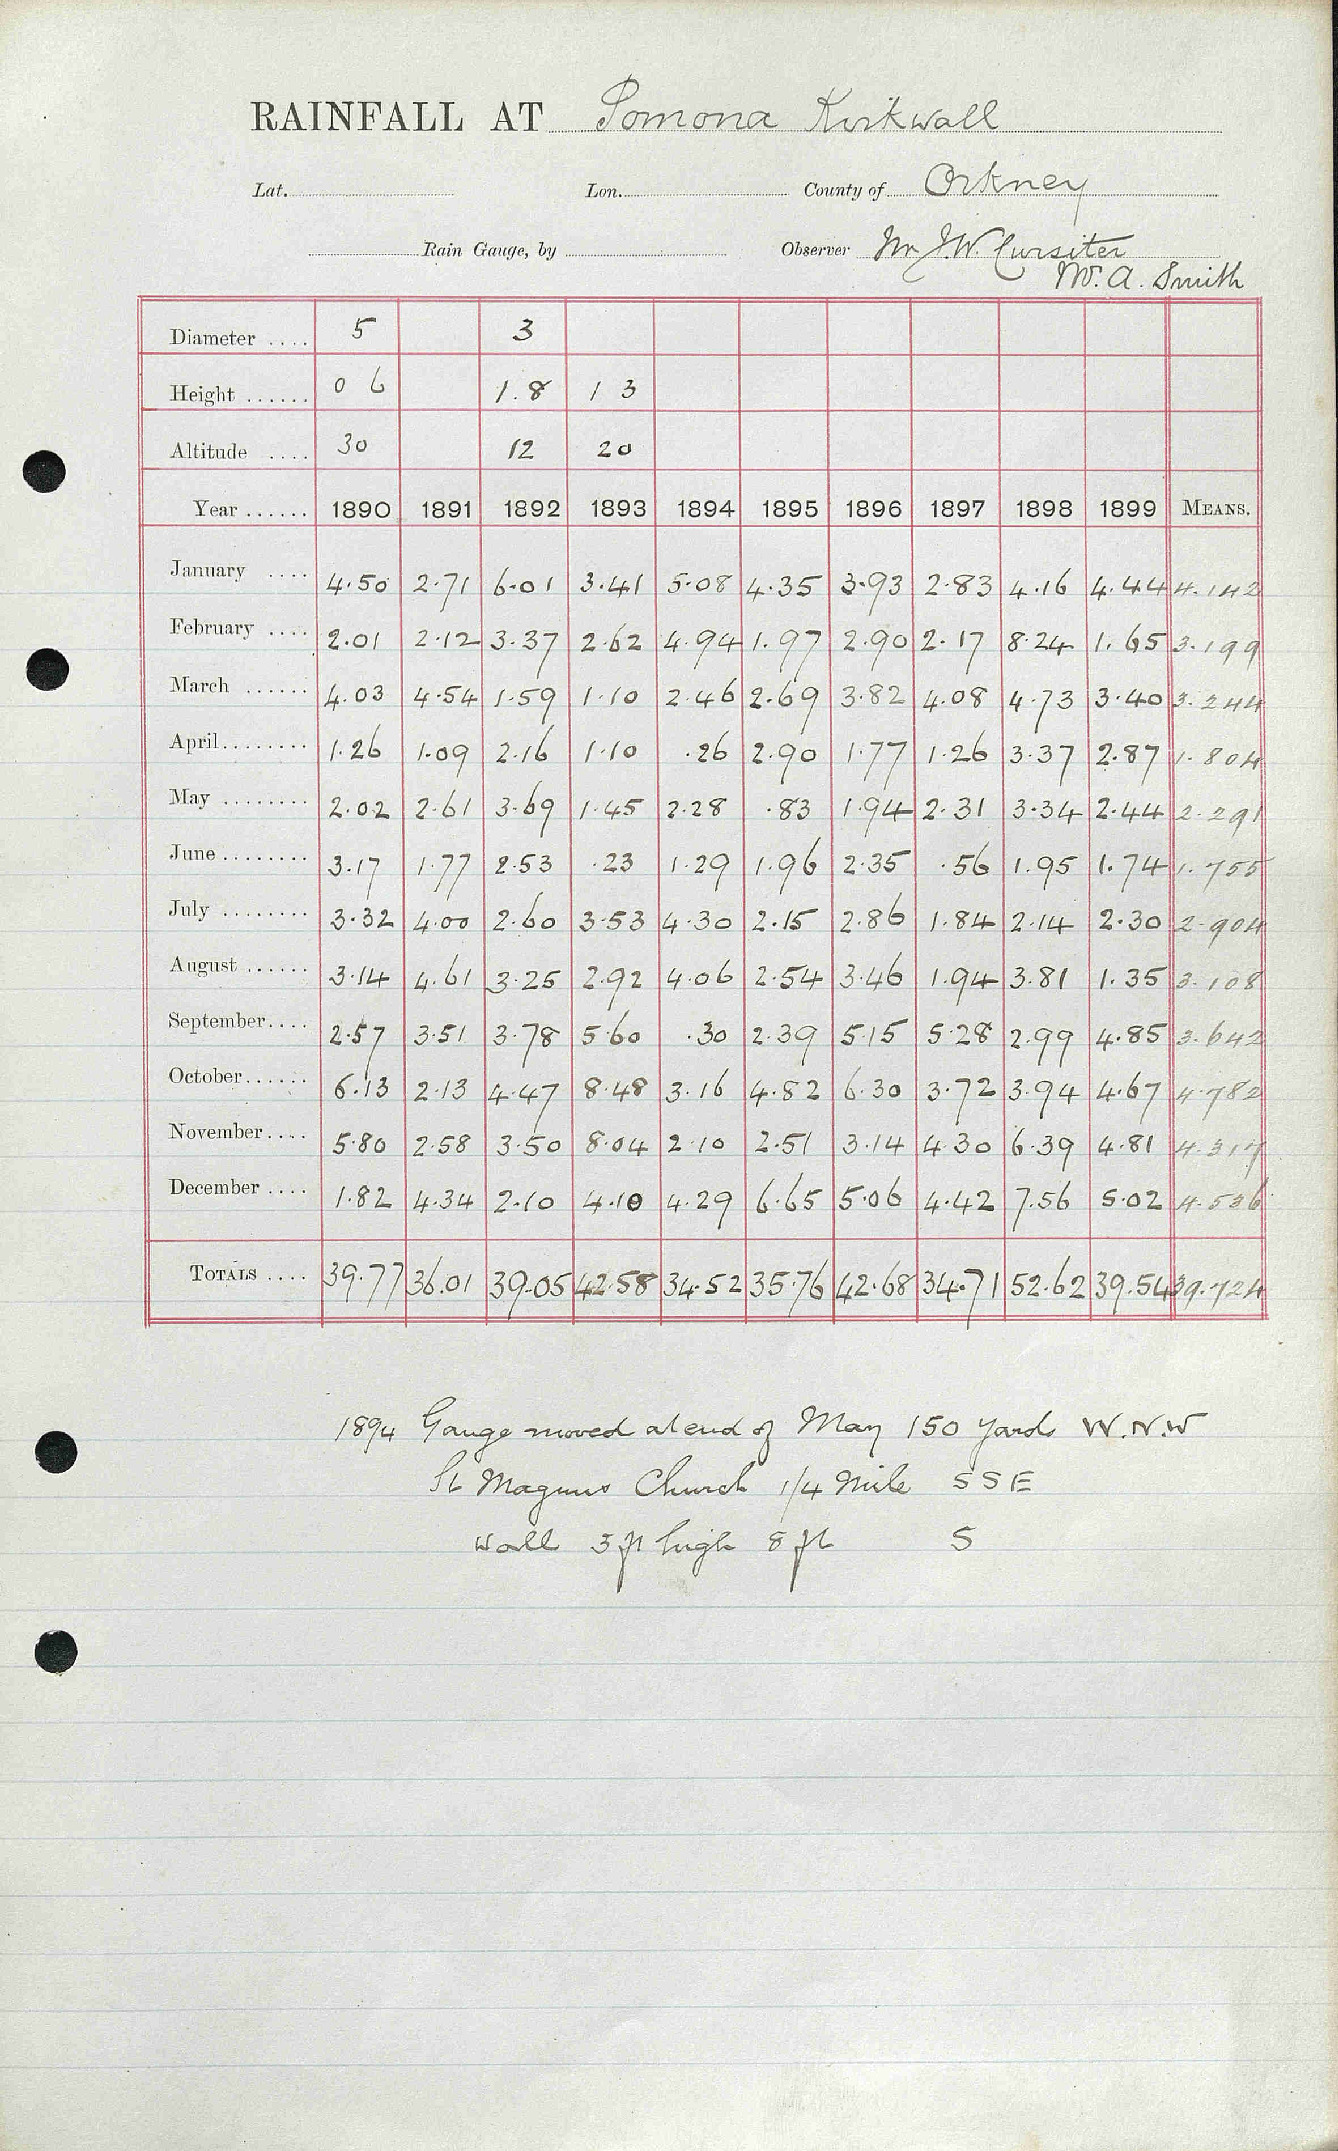 RAINFALL AT Pomona Kirkwall
Lat. Lon. County of Orkney
Rain Gauge, by Observer Mr J.W. Cursiter
Mr. A. Smith
Diameter .... 5 3
Height ...... 0 6 1.8 1 3
Altitude .... 30 12 20
Year ...... 1890 1891 1892 1893 1894 1895 1896 1897 1898 1899 MEANS.
January .... 4.50 2.71 6.01 3.41 5.08 4.35 3.93 2.83 4.16 4.44 4.142
February .... 2.01 2.12 3.37 2.62 4.94 1.97 2.90 2.17 8.24 1.65 3.199
March ...... 4.03 4.54 1.59 1.10 2.46 2.69 3.82 4.08 4.73 3.40 3.244
April ........ 1.26 1.09 2.16 1.10 .26 2.90 1.77 1.26 3.37 2.87 1.804
May ........ 2.02 2.61 3.69 1.45 2.28 .83 1.94 2.31 3.34 2.44 2.291
June ........ 3.17 1.77 2.53 .23 1.29 1.96 2.35 .56 1.95 1.74 1.755
July ........ 3.32 4.00 2.60 3.53 4.30 2.15 2.86 1.84 2.14 2.30 2.904
August ...... 3.14 4.61 3.25 2.92 4.06 2.54 3.46 1.94 3.81 1.35 3.108
September .... 2.57 3.51 3.78 5.60 .30 2.39 5.15 5.28 2.99 4.85 3.642
October ...... 6.13 2.13 4.47 8.48 3.16 4.82 6.30 3.72 3.94 4.67 4.782
November .... 5.80 2.58 3.50 8.04 2.10 2.51 3.14 4.30 6.39 4.81 4.317
December .... 1.82 4.34 2.10 4.10 4.29 6.65 5.06 4.42 7.56 5.02 4.536
TOTALS .... 39.77 36.01 39.05 42.58 34.52 35.76 42.68 34.71 52.62 39.54 39.724
1894 Gauge moved at end of May 150 yards W.N.W
St Magnus Church 1/4 Mile SSE
Wall 3 ft high 8 ft S